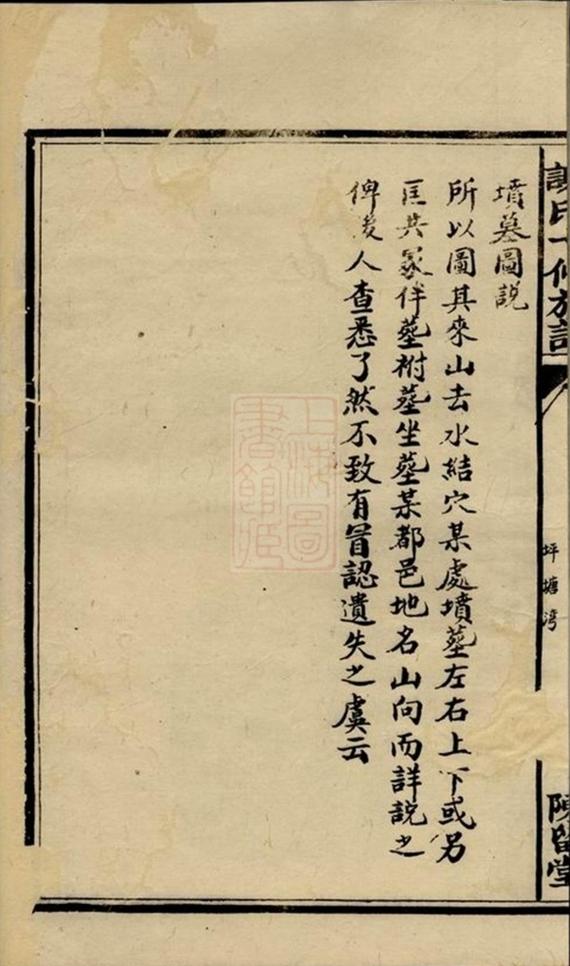 墳墓圖說
所以圖其來山去水結穴某處墳墓左右上下或另
匡共冢伴塟祔塟坐塟某都邑地名山向而詳說之
俾後人查悉了然不致有冒認遺失之虞云
坪塘灣
陳留堂
上海圖書館